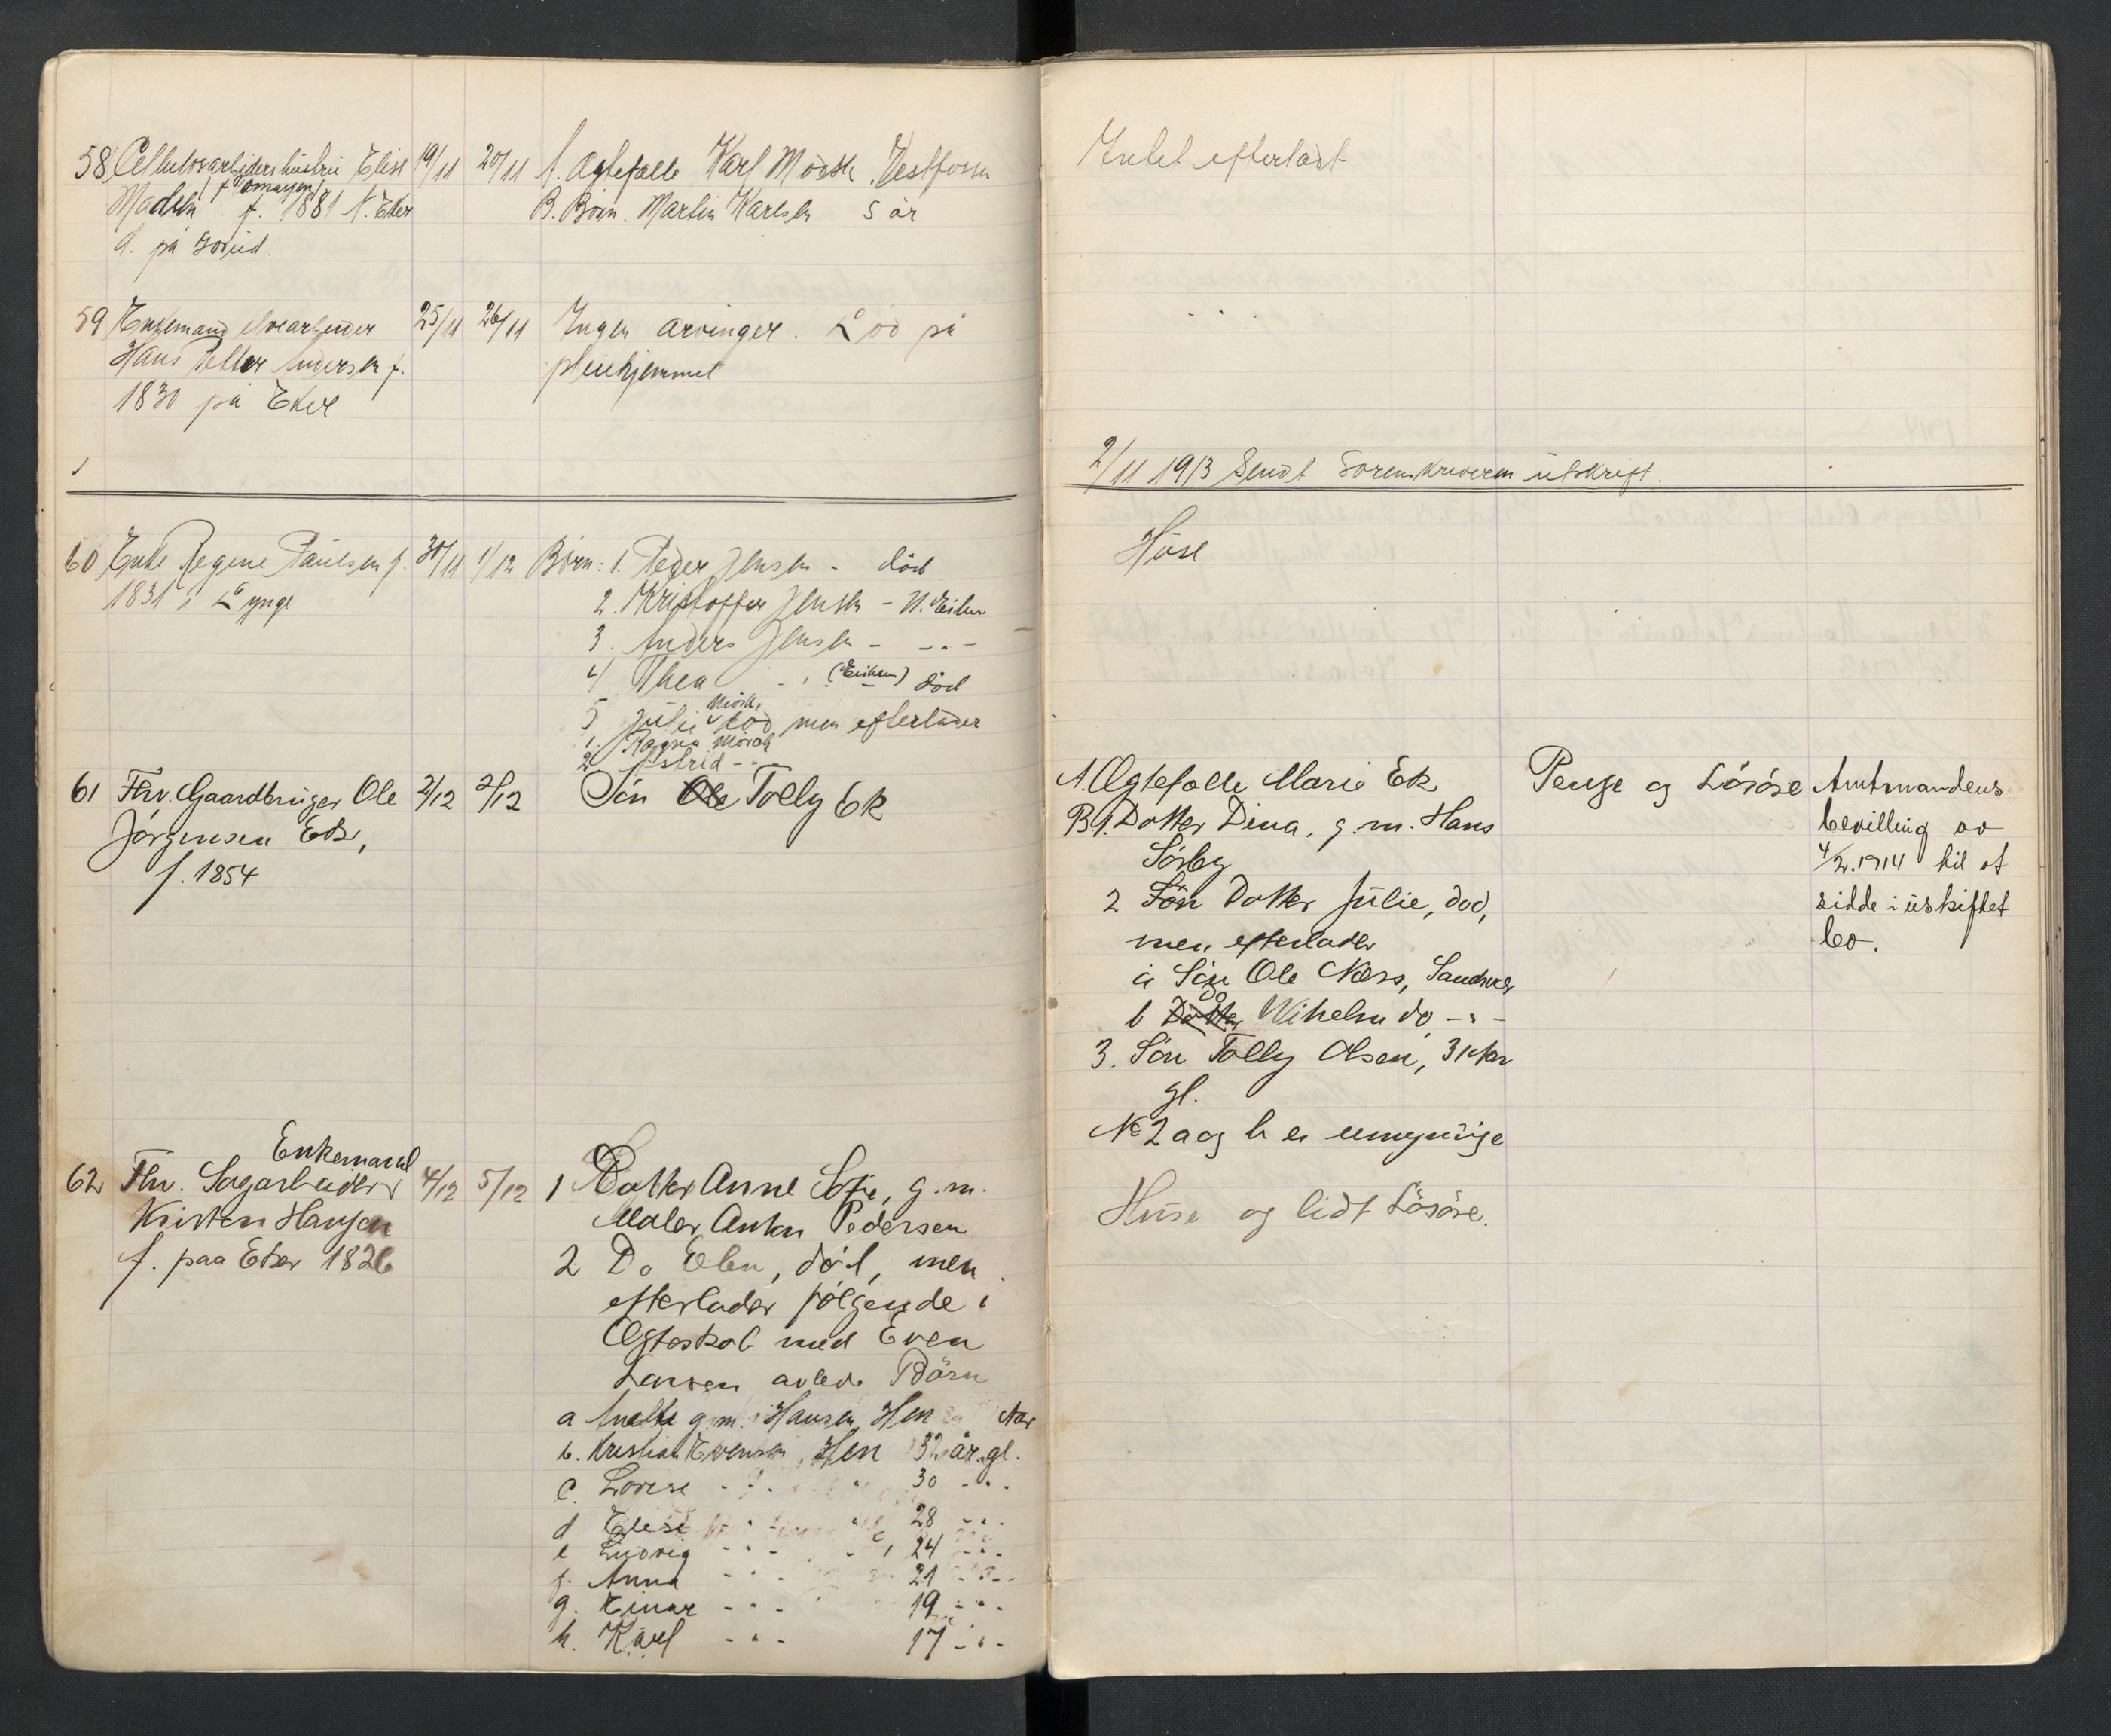 58 Cellulosarbeiderhustru Elise 19/11 20/11 A. Ægtefælle Karl Madsen. Vestfossen
Madsen f. 1881 N. Eker B. Børn. Martin Karlsen 5 år
d. på
59 Enkemand elvearbeider 25/11 26/11 Ingen arvinger. Død på
Hans Petter Andersen f. pleiehjemmet
1830 på Eker
60 Enke Regine Paulsen f. 30/11 1/12 Børn: 1. Peder Jensen - død
1831 i Lynge 2. Kristoffer Jensen - N. Eiker
3. Anders Jensen - - " -
4 Thea - " (Eikern) død
5 Julie Mørk død, men efterlader
1. Ragna Mørch
2. Astrid - " -
61 Fhv. Gaardbruger Ole 2/12 2/12 Søn Ole Tolly Ek
Jørgensen Ek,
f. 1854
Enkemand
62 Fhv. Sagarbeider 4/12 5/12 1 Datter Anne Sofie, g. m.
Kristen Hansen Maler Anton Pedersen
f. paa Eker 1826 2 Do Elen, død, men
efterlader følgende i
Ægteskab med Even
Larsen avlede Børn
a Anette g. m. Hansen, Hen Aar
b. Kristian Evensen, Hen 32 år gl.
c. Lovise - " - 30 - " -
d Elise - " - 28 - " -
e Ludvig - " - 24 - " -
f. Anna - " - 21 - " -
g. Einar - " - 19 - " -
h. Karl - " - 17 - " -
Intet efterladt
2/11 1913 Sendt Sorenskriveren utskrift.
Huse
A. Ægtefælle Marie Ek Penge og Løsøre Amtmandens
B 1. Datter Dina, g. m. Hans bevilling av
Sørby 4/2. 1914 til at
2 Søn Datter Julie, død, sidde i uskiftet
men efterlader bo.
a Søn Ole Næss, Sandsvær
b Datter Do Wilhelm do - " -
3. Søn Tolly Olsen, 31 Aar
gl.
No 2 a og b er umyndige
Huse og lidt Løsøre.